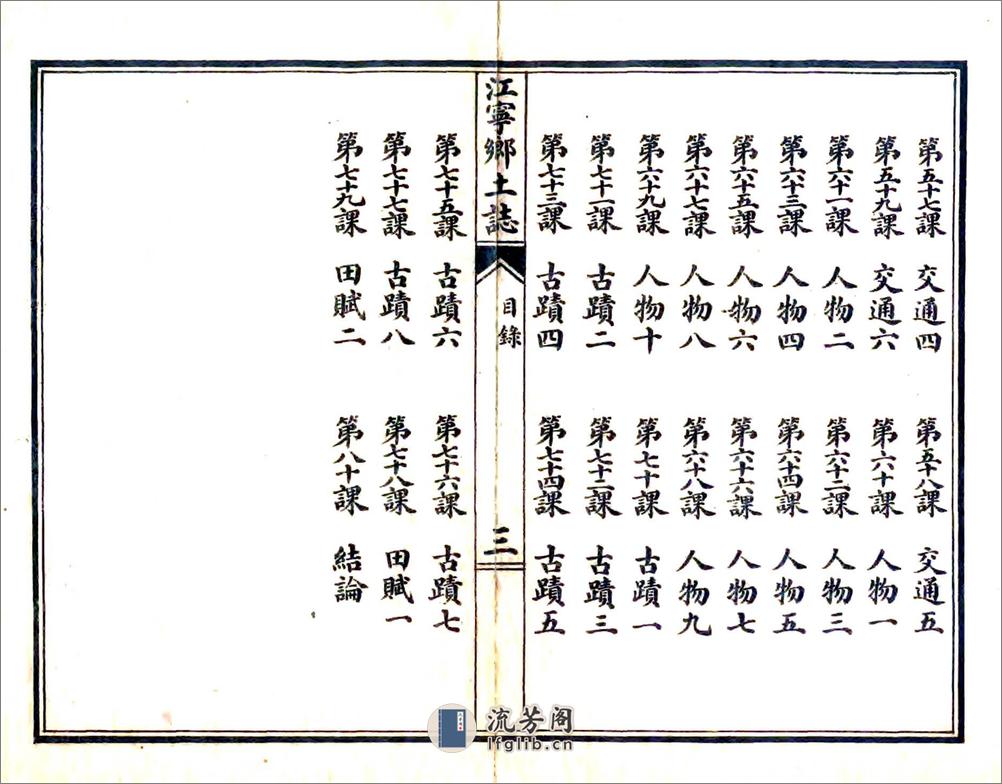 第五十七課 交通四 第五十八課 交通五
第五十九課 交通六 第六十課 人物一
第六十一課 人物二 第六十二課 人物三
第六十三課 人物四 第六十四課 人物五
第六十五課 人物六 第六十六課 人物七
第六十七課 人物八 第六十八課 人物九
第六十九課 人物十 第七十課 古蹟一
第七十一課 古蹟二 第七十二課 古蹟三
第七十三課 古蹟四 第七十四課 古蹟五
江寧鄉土誌 目錄 三
第七十五課 古蹟六 第七十六課 古蹟七
第七十七課 古蹟八 第七十八課 田賦一
第七十九課 田賦二 第八十課 結論
流芳阁
lfglib.cn